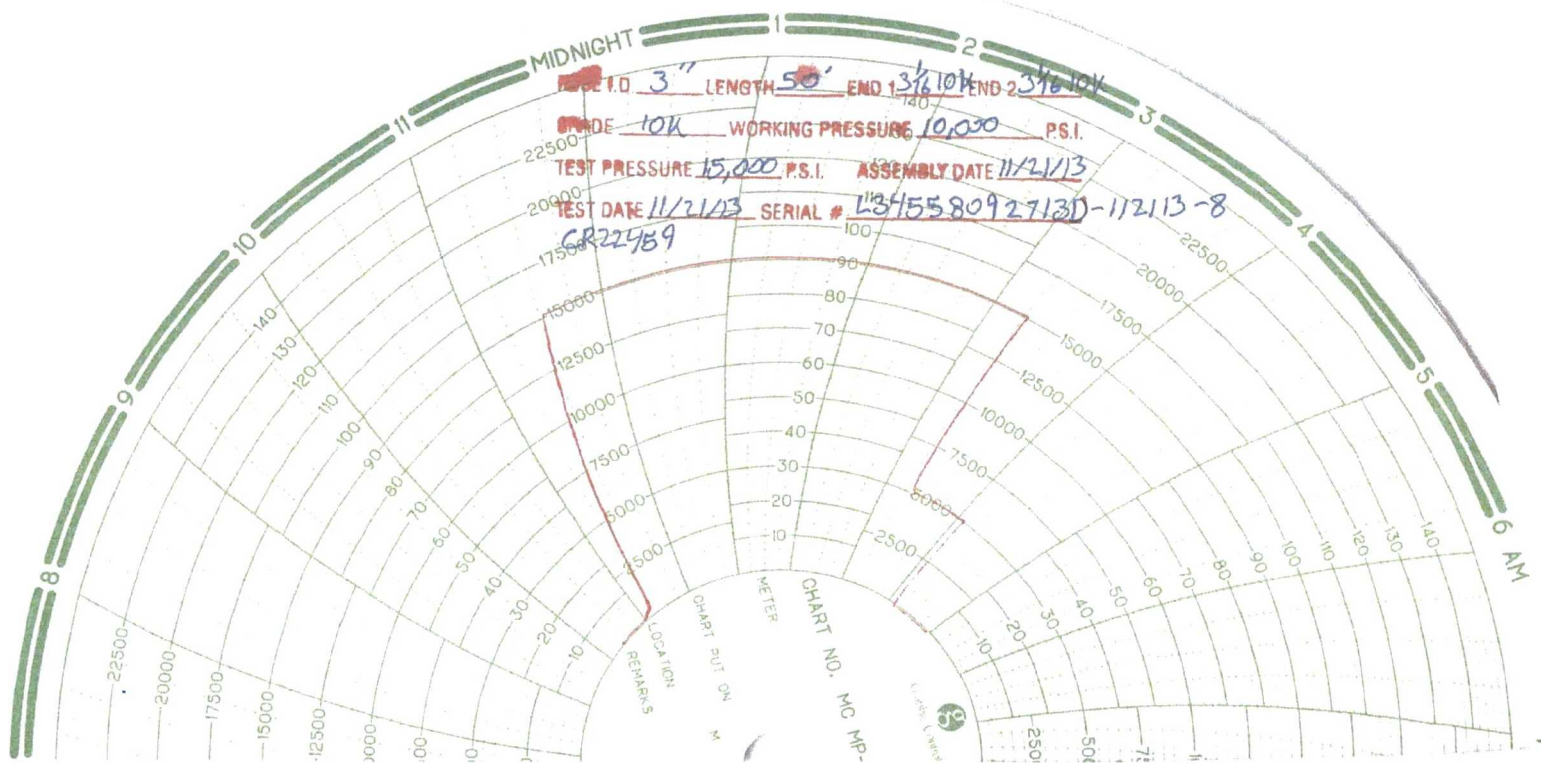 MIDNIGHT 1 2 3 4 5 6 AM
11 10 9 8
I.D. 3" LENGTH 50' END 1 3 1/16 10K END 2 3 1/16 10K
GRADE 10K WORKING PRESSURE 10,000 P.S.I.
TEST PRESSURE 15,000 P.S.I. ASSEMBLY DATE 11/21/13
TEST DATE 11/21/13 SERIAL # L34558092713D-112113-8
GR22459
22500 20000 17500 15000 12500 10000 7500 5000 2500
140 110 100 90 80 70 60 50 40 30 20 10
22500 20000 17500 15000 12500 10000 7500 5000 2500
140 130 120 110 100 90 80 70 60 50 40 30 20 10
140 130 120 110 100 90 80 70 60 50 40 30 20 10
22500 20000 17500 15000 12500
2500
REMARKS
LOCATION
CHART PUT ON M
METER
CHART NO. MC MP-